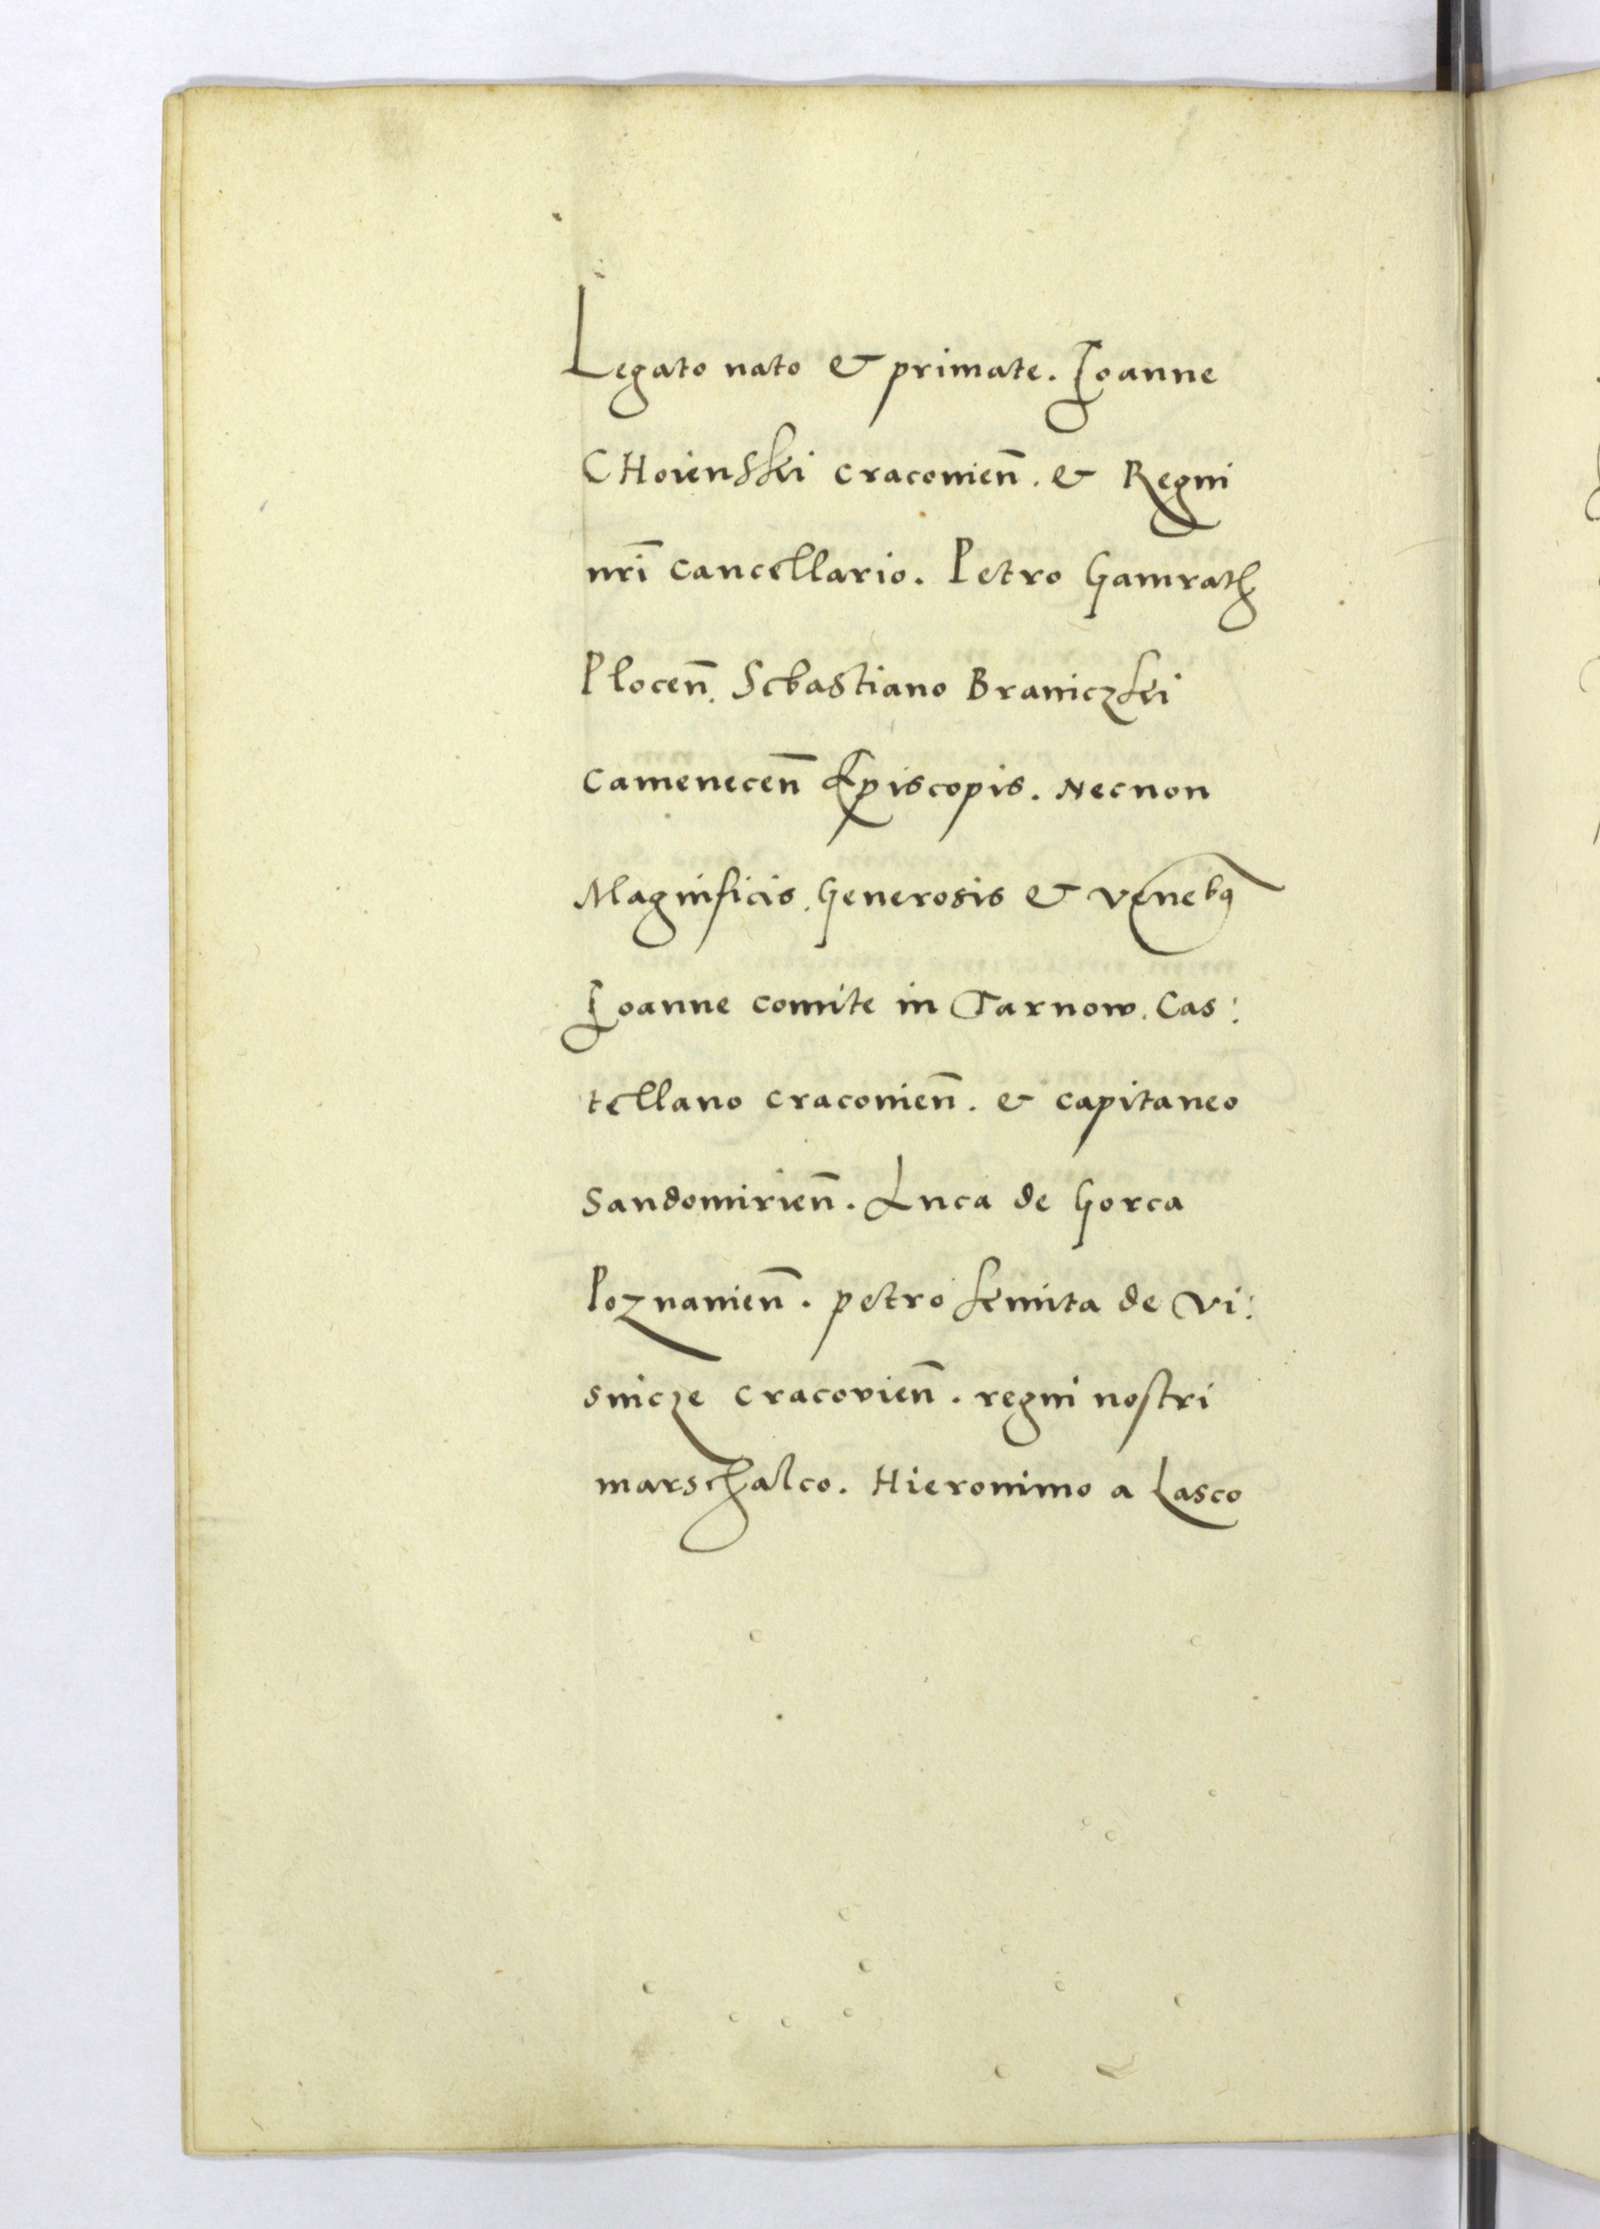 Legato nato & primate. Ioanne
CHoienski Cracouien̄. & Regni
nr̄i Cancellario. Petro Gamrath
Plocen̄. Sebastiano Braniczki
Camenecen̄ Episcopis. Necnon
Magnificis. Generosis & venebq
Ioanne comite in Tarnow. Cas:
tellano Cracouien̄. & Capitaneo
Sandomirien̄. Luca de Gorca
Poznanien̄. petro kmita de vi:
snicze Cracovien̄. regni nostri
marschalco. Hieronimo a Lasco